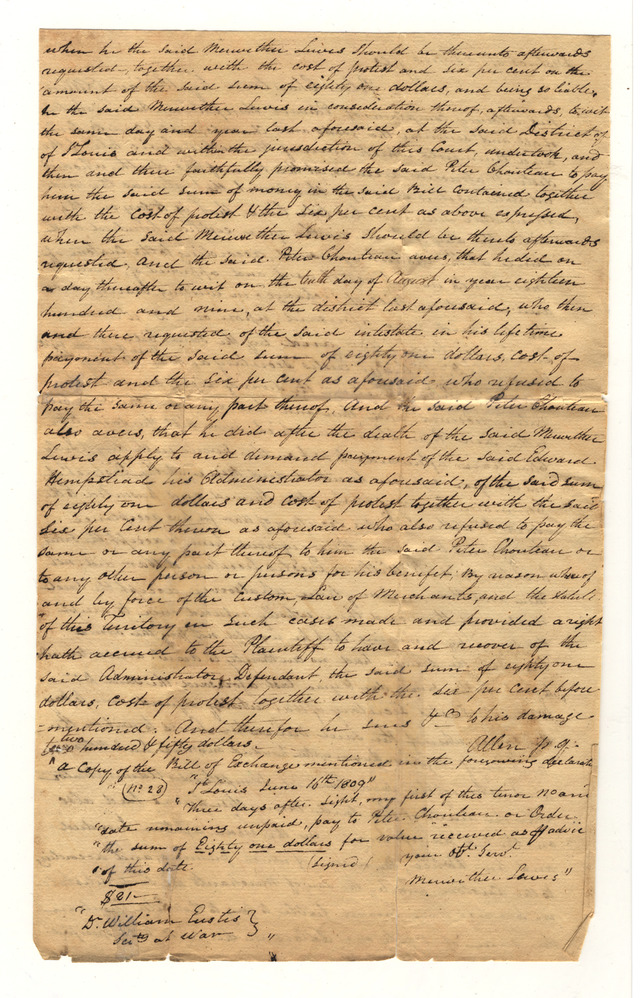 when he the said Meriwether Lewis should be thereunto afterwards
requested, together with the cost of protest and six per cent on the
amount of the said sum of eighty one dollars, and being so liable,
he the said Meriwether Lewis in consideration thereof, afterwards, to wit
the same day and year last aforesaid, at the said District of
of St Louis and within the jurisdiction of this Court, undertook, and
then and there faithfully promised the said Peter Chouteau to pay
him the said sum of money in the said Bill contained together
with the Cost of protest & the six per cent as above expressed,
when the said Meriwether Lewis should be thereto afterwards
requested, And the said Peter Chouteau avers, that he did on
a day thereafter to wit on the tenth day of August in year eighteen
hundred and nine, at the district last aforesaid, who then
and there requested of the said intestate in his life time
payment of the said sum of eighty one dollars, cost of
protest and the six per cent as aforesaid who refused to
pay the same or any part thereof, And he said Peter Chouteau
also avers, that he did after the death of the said Meriwether
Lewis apply to and demand payment of the said Edward
Hempstead his Administrator as aforesaid, of the said sum
of eighty one dollars and cost of protest together with the said
six per Cent thereon as aforesaid who also refused to pay the
same or any part thereof, to him the said Peter Chouteau or
to any other person or persons for his benefit; By reason whereof
and by force of the Custom Law of Merchants, and the statute
of this Territory in such cases made and provided a right
hath accrued to the Plaintiff to have and recover of the
said Administrator, Defendant, the said sum of eighty one
dollars, cost of protest together with the six per cent before
mentioned. And therefor he sues &c to his damage
two hundred & fifty dollars.
Allen p. q.
"A Copy of the Bill of Exchange mentioned in the foregoing declarat
(No 28) "St Louis June 16th 1809"
"Three days after sight, my first of this tenor No and
"date remaining unpaid, pay to Peter Chouteau or Order
"the sum of Eighty one dollars for value received as pr advice
"of this date (signed) your Obt. Servt.
Meriwether Lewis"
$81—
"Dr. William Eustis }
Secty at War } "